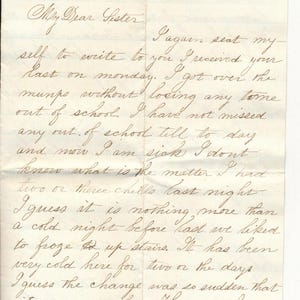 My Dear Sister
I again seat my
self to write to you I received your
last on monday. I got over the
mumps without losing any time
out of school I have not missed
any out of school till to day
and now I am sick I dont
know what is the matter I had
two or three chills last night
I guess it is nothing more than
a cold night before last we liked
to froze up stairs. It has been
very cold here for two or the days
I guess the change was so sudden that